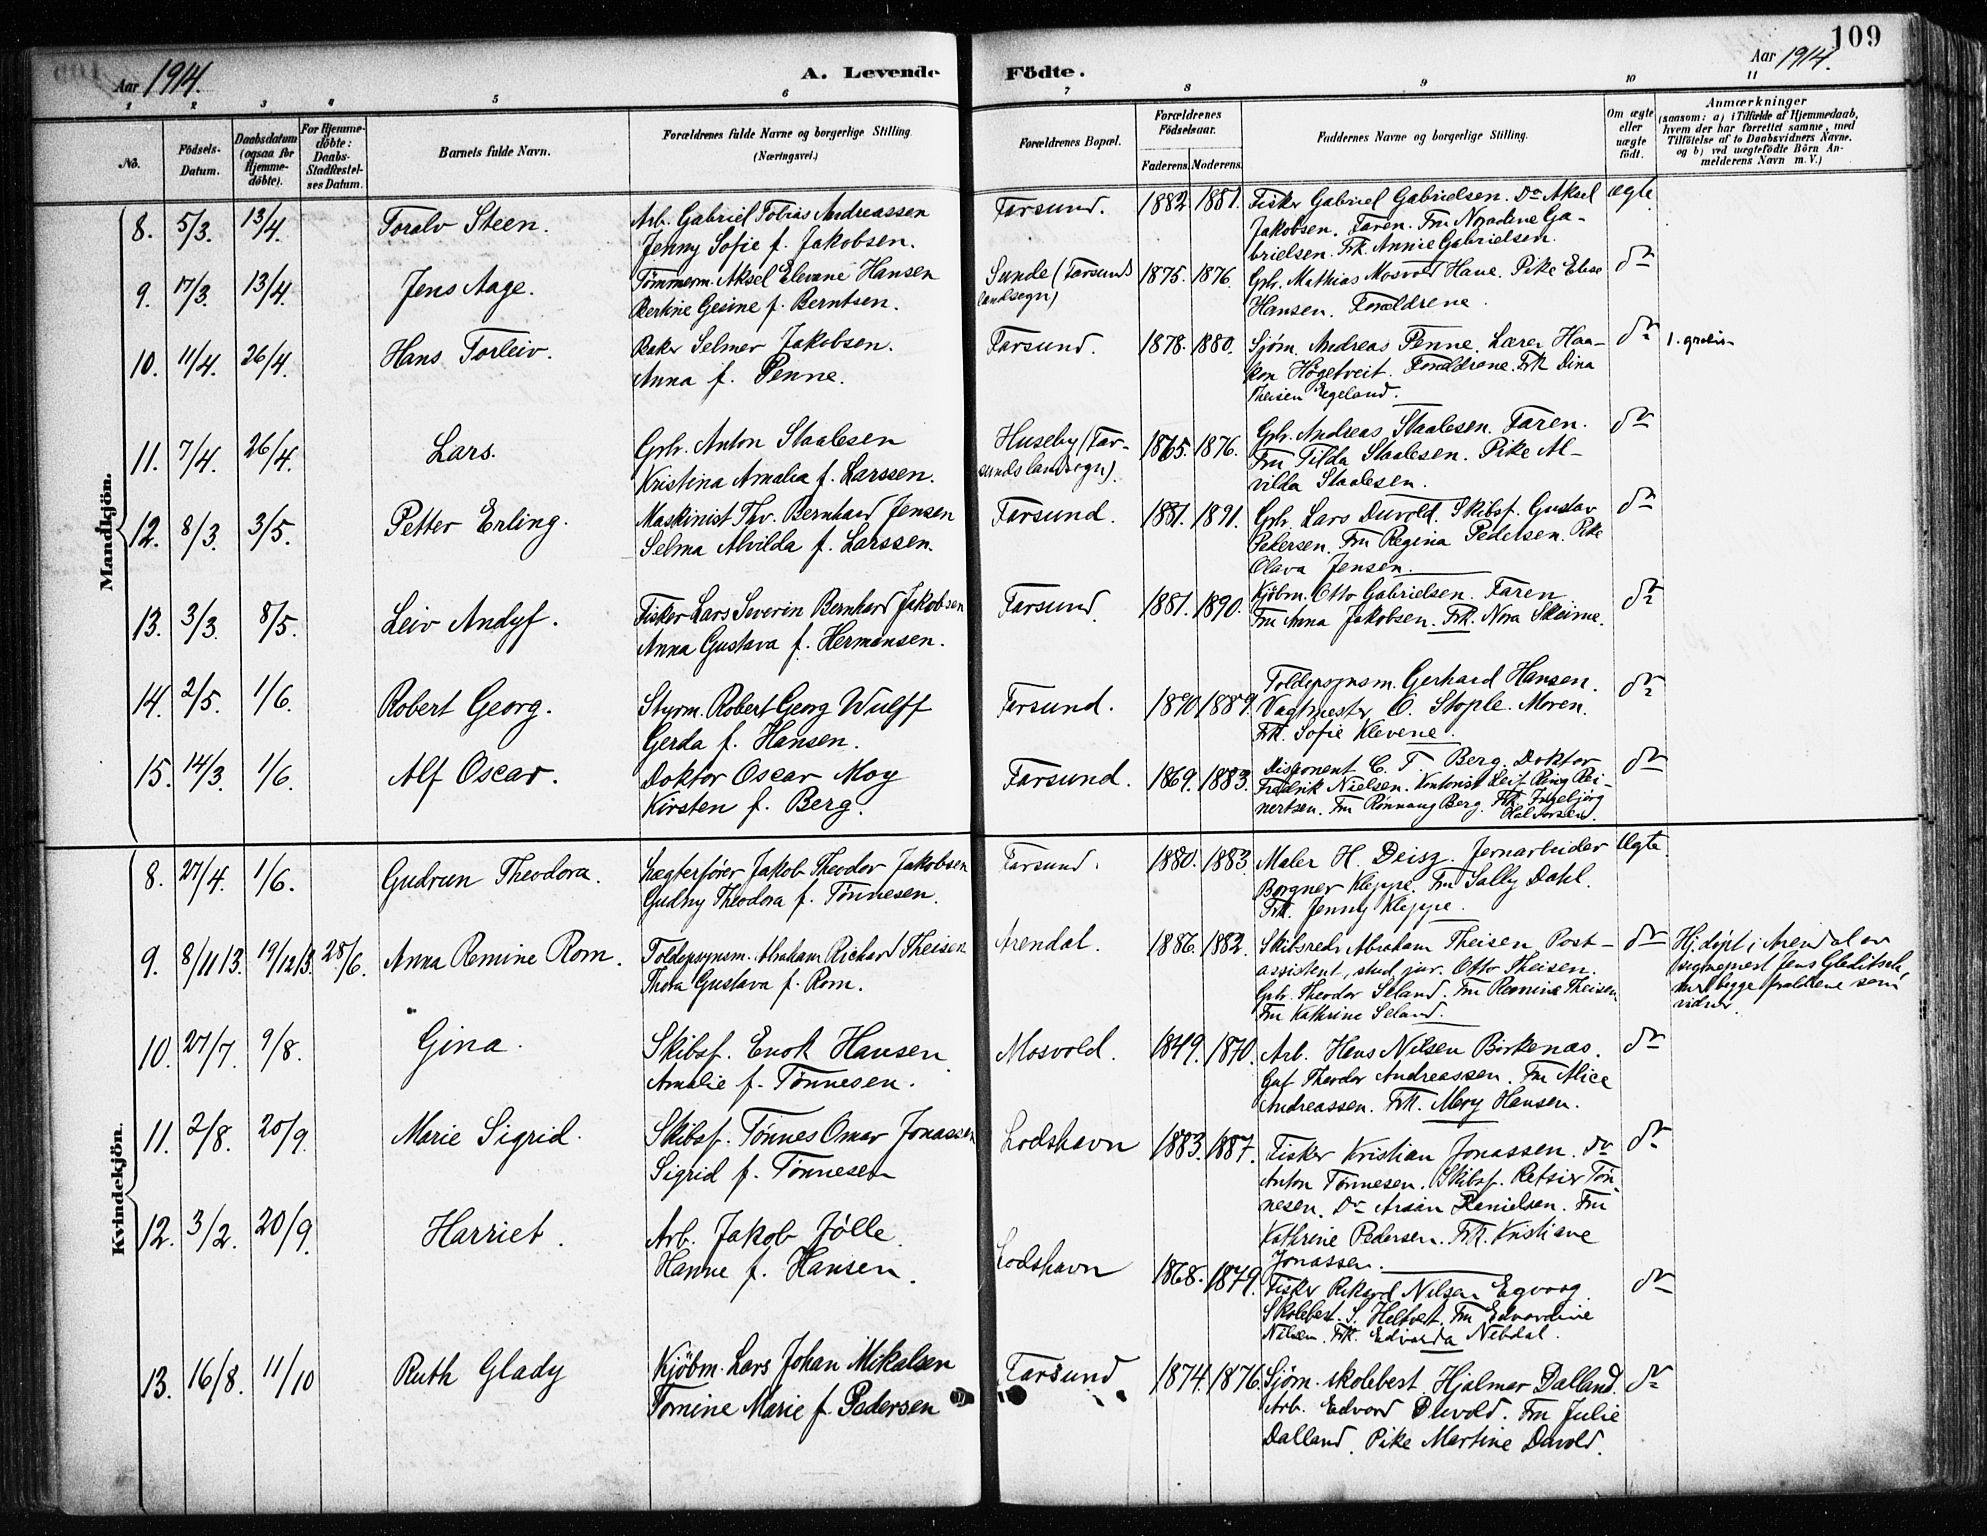 109
Aar 1914.
A. Levende Födte.
Aar 1914.
1 2 3 4 5 6 7 8 9 10 11
No.
Födsels-Datum.
Daabsdatum (ogsaa for Hjemme-döbte).
For Hjemme-döbte: Daabs-Stadfestel-ses Datum.
Barnets fulde Navn.
Forældrenes fulde Navne og borgerlige Stilling.
(Næringsvei.)
Forældrenes Bopæl.
Forældrenes Födselsaar.
Faderens. Moderens.
Faddernes Navne og borgerlige Stilling.
Om ægte eller uægte födt.
Anmærkninger
(saasom: a) i Tilfælde af Hjemmedaab, hvem der har forrettet samme, med Tilföielse af to Daabsvidners Navne. og b) ved uægtefödte Börn An-melderens Navn m. V.)
Mandkjön.
8. 5/3. 13/4. Toralv Steen. Arb. Gabriel Tobias Andreassen
Jenny Sofie f. Jakobsen.
Farsund. 1882 1881. Fisker Gabriel Gabrielsen. Do Aksel
Jakobsen. Faren. Fru Ga-
brielsen. Frk. Annie Gabrielsen.
ægte
9. 17/3. 13/4. Jens Aage. Tömmerm. Aksel Hansen
Bertine Gesine f. Berntsen.
Sunde (Farsunds
landsogn)
1875. 1876. Grb. Mathias Mosvold Haue. Pike Elise
Hansen. Forældrene.
do
10. 11/4. 26/4. Hans Torleiv. Baker Selmer Jakobsen.
Anna f. Penne.
Farsund. 1878. 1880. Sjøm. Andreas Penne. Lærer Haa-
kon Högetveit. Forældrene. Frk Dina
Theisen Egeland.
do 1. gratis
11. 7/4. 26/4. Lars. Grb. Anton Staalesen
Kristina Amalia f. Larssen.
Huseby (Far-
sunds landsogn).
1865. 1876. Grb. Andreas Staalesen. Faren.
Fru Tilda Staalesen. Pike Al-
vilda Staalesen.
do
12. 8/3. 3/5. Petter Erling. Maskinist Thv. Bernhard Jensen
Selma Alvilda f. Larssen.
Farsund. 1881. 1891. Grb. Lars Duvold. Skibsf. Gustav
Pedersen. Fru Regina Pedersen. Pike
Olava Jensen.
do
13. 3/3. 8/5. Leiv Andyf. Fisker Lars Severin Bernhard Jakobsen
Anna Gustava f. Hermansen.
Farsund. 1881. 1890. Kjöbm. Otto Gabrielsen. Faren
Fru Anna Jakobsen. Frk. Nora Skeime.
do
14. 2/5. 1/6. Robert Georg. Styrm. Robert Georg Wulff
Gerda f. Hansen.
Farsund. 1890 1889. Toldopsynsm. Gerhard Hansen.
Vagtmester C. Stople. Moren.
Frk. Sofie Klevene.
do
15. 14/3. 1/6. Alf Oscar. Doktor Oscar Moy
Kirsten f. Berg.
Farsund. 1869. 1883. Disponent C. T Berg. Doktor
Fredrik Nielsen. Kontorist Leif Ring Rei-
nertsen. Fru Rönnaug Berg. Frk. Ingebjörg
Halvorsen.
do
Kvindekjön.
8. 27/4. 1/6. Gudrun Theodora. Lægterförer Jakob Theodor Jakobsen
Gudny Theodora f. Tönnesen.
Farsund. 1880. 1883. Maler H. Deisz. Jernarbeider
Borgner Kleppe. Fru Sally Dahl.
Frk. Jenny Kleppe.
Ægte
9. 8/11 13. 19/12 13. 28/6. Anna Remine Rom. Toldopsynsm. Abraham Richard Theisen
Thora Gustava f. Rom.
Arendal. 1886. 1882. Skibsreder Abraham Theisen. Post-
assistent, stud. jur. Otto Theisen.
Grb. Theodor Seland. Fru Remine Theisen
Fru Kathrine Seland.
do Hj.döpt i Arendal av
Jens Gleditsch,
begge forældrene som
vidner.
10. 27/7. 9/8. Gina. Skibsf. Enok Hansen
Amalie f. Tönnesen.
Mosvold. 1849. 1870. Arb. Hans Nilsen Birkenas.
Theodor Andreassen. Fru Alice
Andreassen. Frk. Mary Hansen.
do
11. 2/8. 20/9. Marie Sigrid. Skibsf. Tönnes Omar Jonassen
Sigrid f. Tönnesen
Lodshavn 1883. 1887. Fisker Kristian Jonassen. Do
Anton Tönnesen. Skibsf. Tön-
nesen. Do Danielsen. Fru
Kathrine Pedersen. Frk. Kristiane
Jonassen.
do
12. 3/2. 20/9. Harriet. Arb. Jakob Jölle.
Hanne f. Hansen.
Lodshavn 1868. 1879. Fisker Rikard Nilsen Egvaag
Skolebest. S. Heltvet. Fru Edvardine
Nilsen. Frk. Edvarda Nebdal.
do
13. 16/8. 11/10 Ruth Glady Kjöbm. Lars Johan Mikalsen
Tomine Marie f. Pedersen
Farsund 1874. 1876. Sjöm. skolebest. Hjalmar Dalland.
Arb. Edvard Duvold. Fru Julie
Dalland. Pike Martine Duvold.
do